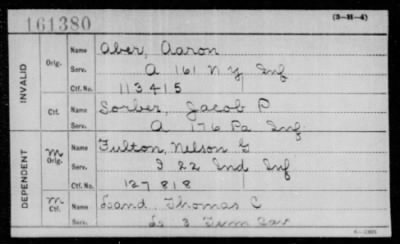 161380
(3-H-4)
INVALID
Orig.
Name Aber, Aaron
Serv. A 161 N Y Inf
Ctf. No. 113415
Ctf.
Name Sorber, Jacob P
Serv. A 176 Pa Inf
DEPENDENT
M Orig.
Name Fulton, Nelson G
Serv. I 22 Ind Inf
Ctf. No. 127818
M Ctf.
Name Land, Thomas C
Serv. 3 Tenn Cav